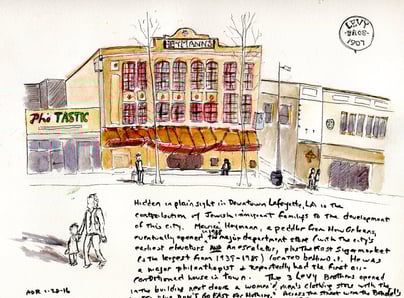 HEYMANN'S
LEVY
BROS
1907
Pho TASTIC
Hidden in plain sight in Downtown Lafayette, LA is the
contribution of Jewish immigrant familys to the development
of this city. Maurice Heymann, a peddler from New Orleans,
eventually opened major department store (with the city's
earliest elevators AND an escalator, plus the first supermarket
(a the largest from 1939-1951) located behind). He was
a major philanthropist & reportedly had the first air-
conditioned house in town. The 3 LEVY Brothers opened
in the building next door a women & men's clothing store with the
DON'T GO EAST FOR Nothing." Across the street was the
ADR 1-20-16